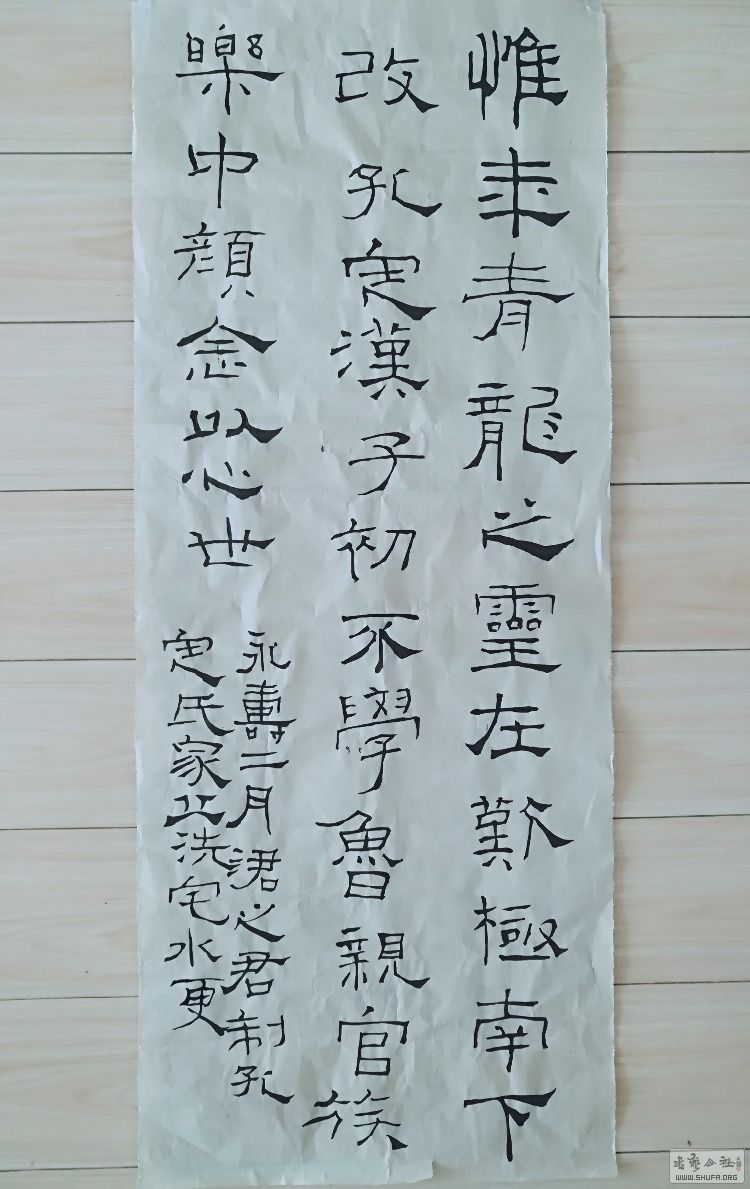 惟年青龍之靈在歎極南下
改孔定漢子初不學魯親官族
樂中顏念以心世
永壽二月涒之君制孔
定氏家止洗宅水更
書藝公社
WWW.SHUFA.ORG